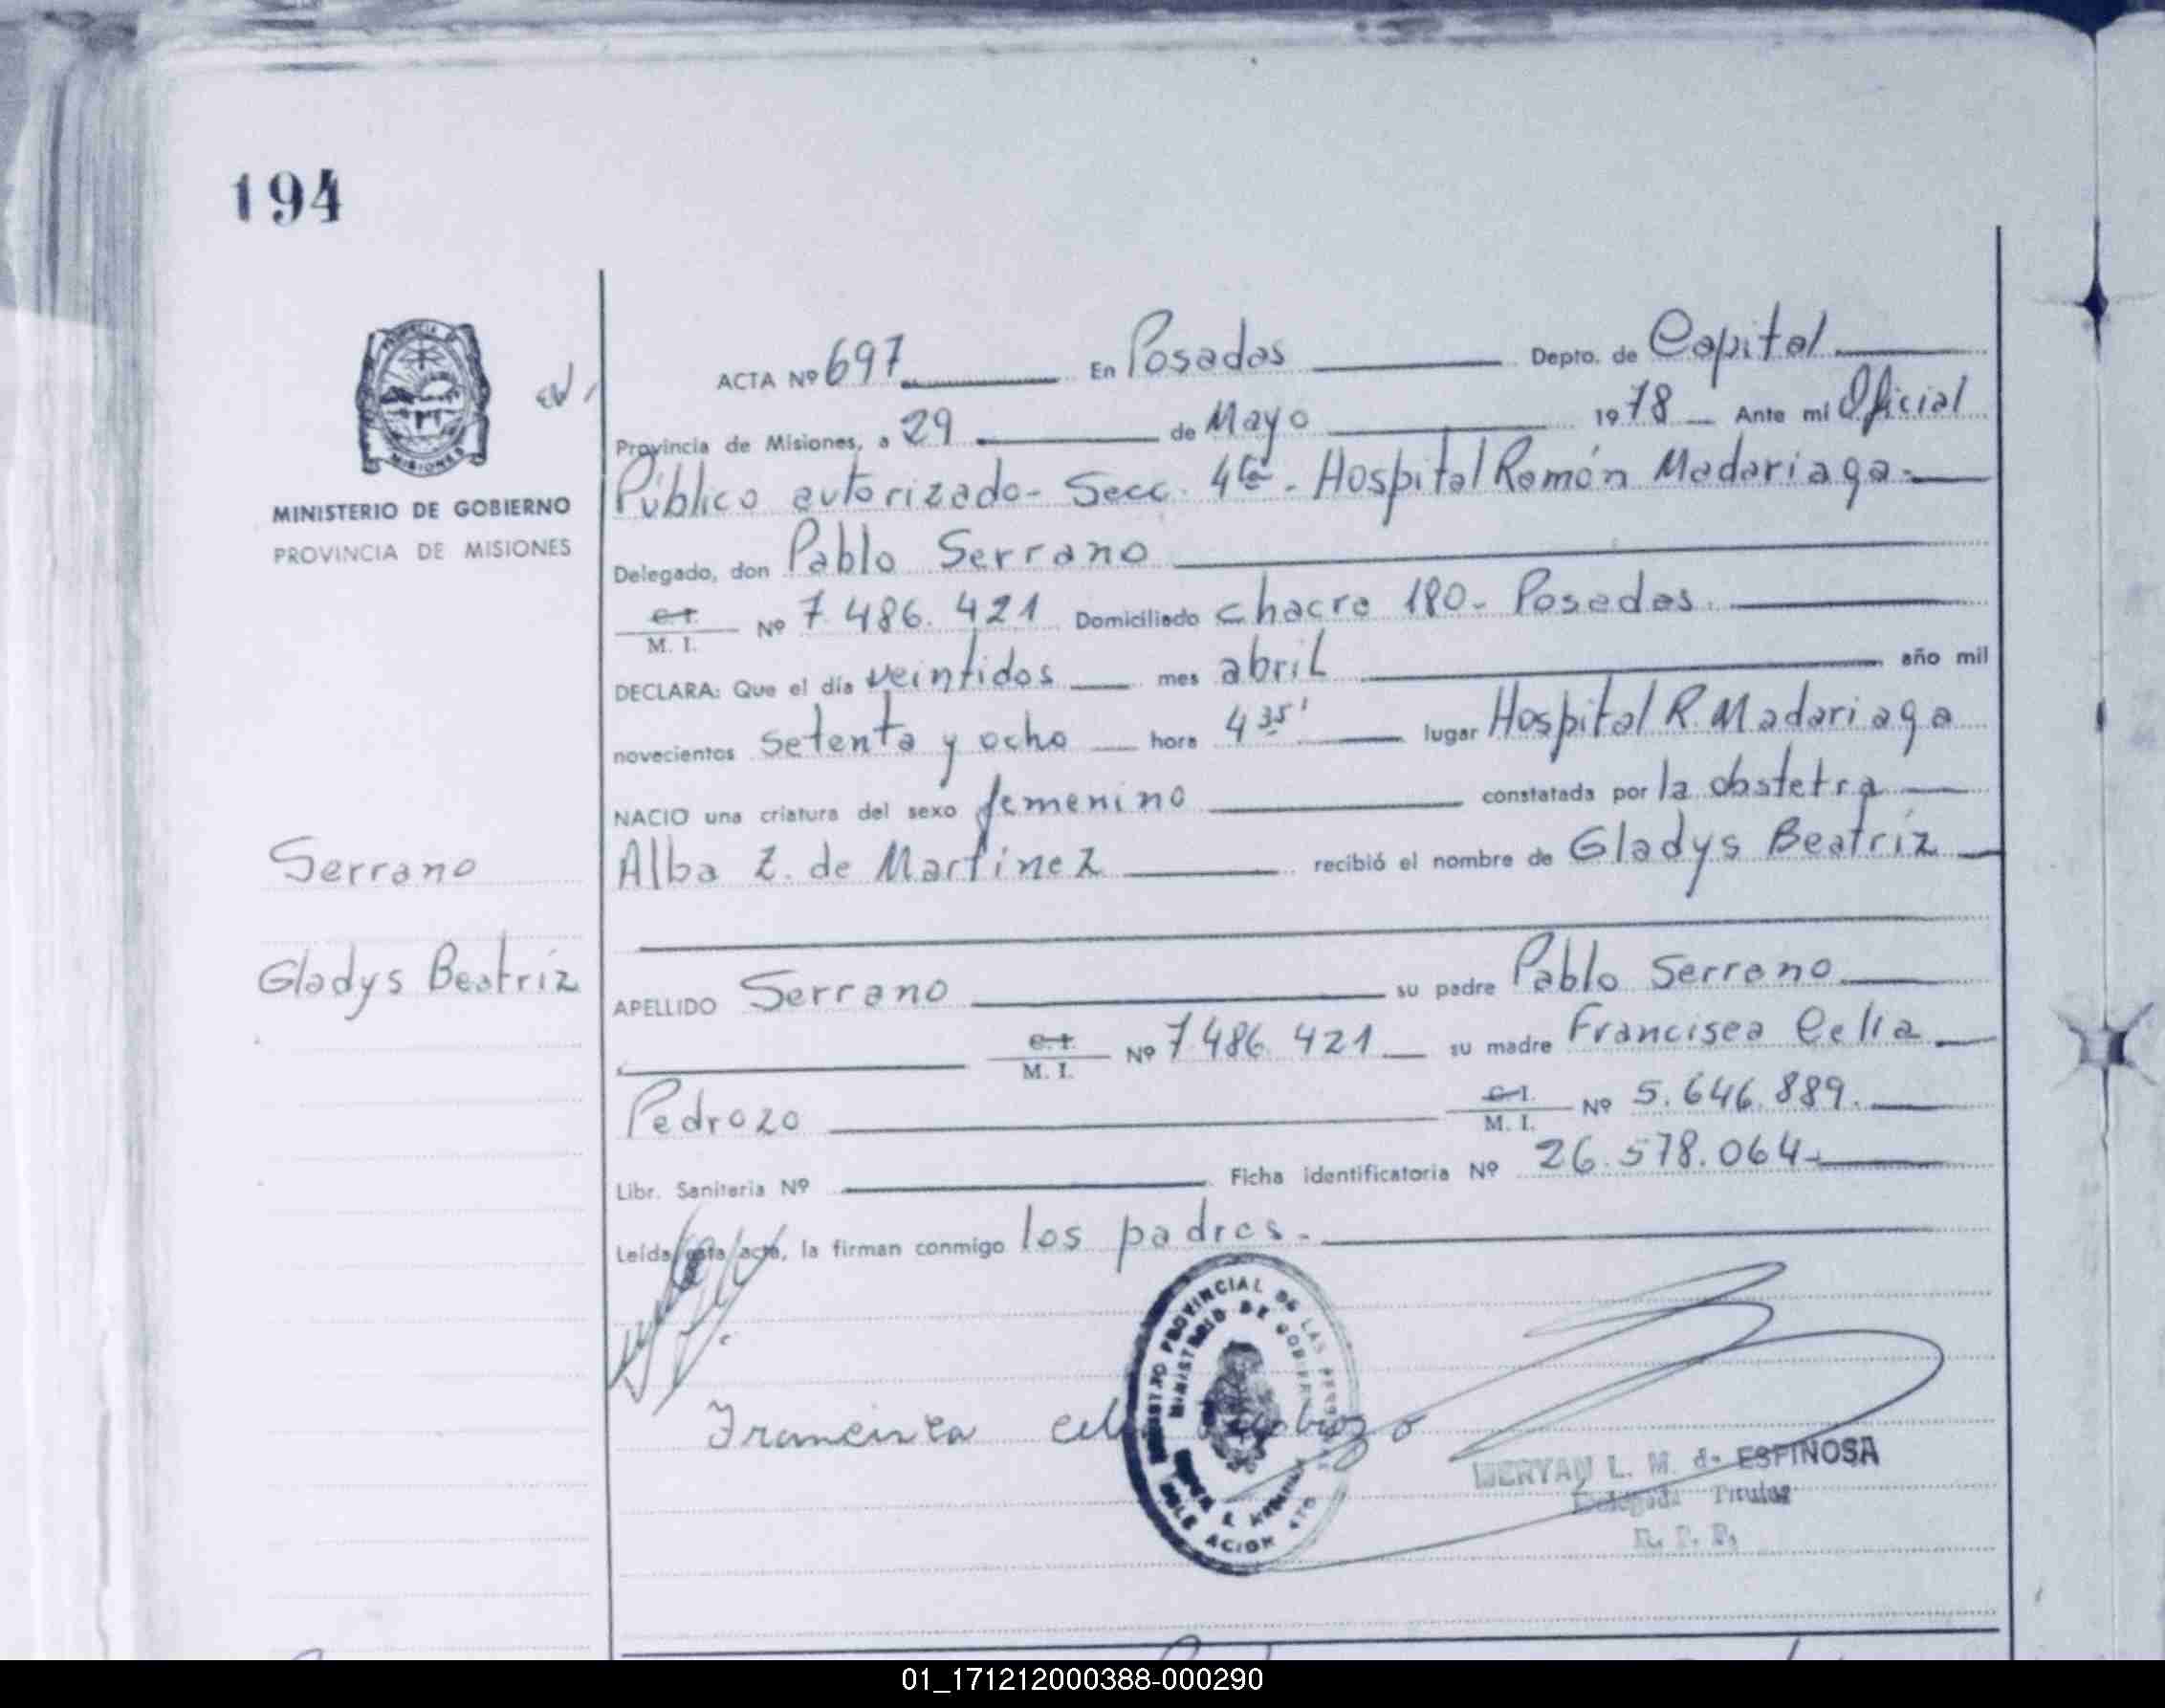 194
ACTA Nº 697 En Posadas Depto. de Capital
Provincia de Misiones, a 29 de Mayo 1978 Ante mí Oficial
Público autorizado- Secc. 4ta - Hospital Ramón Madariaga-
MINISTERIO DE GOBIERNO
PROVINCIA DE MISIONES
Delegado, don Pablo Serrano
C.I. M. I. Nº 7.486.421 Domiciliado chacra 180- Posadas.
DECLARA: Que el día veintidos mes abril año mil
novecientos setenta y ocho hora 4 35' lugar Hospital R. Madariaga
NACIO una criatura del sexo femenino constatada por la obstetra
Serrano
Alba Z. de Martínez recibió el nombre de Gladys Beatríz
Gladys Beatríz
APELLIDO Serrano su padre Pablo Serrano
C.I. M. I. Nº 7.486.421 su madre Francisca Celia
Pedrozo C.I. M. I. Nº 5.646.889.
Libr. Sanitaria Nº Ficha identificatoria Nº 26.578.064-
Leída esta acta, la firman conmigo los padres.-
Francisca
L. M. de ESPINOSA
Delegada Titular
R. P. P.
01_171212000388-000290